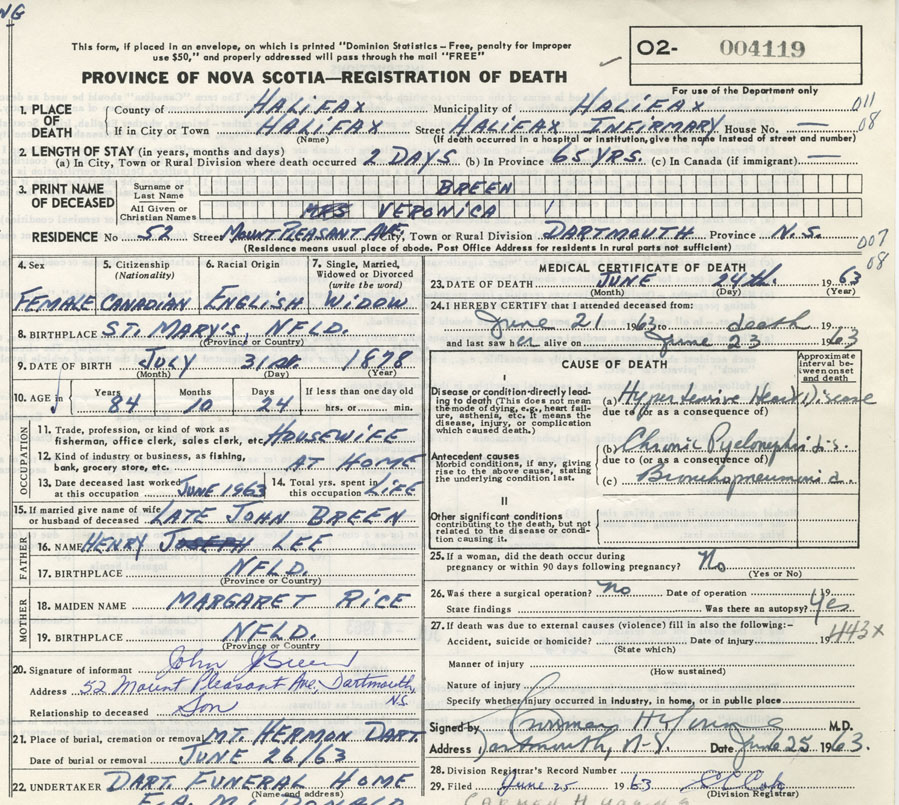 NG
This form, if placed in an envelope, on which is printed "Dominion Statistics – Free, penalty for improper
use $50," and properly addressed will pass through the mail "FREE"
O2- 004119
PROVINCE OF NOVA SCOTIA—REGISTRATION OF DEATH
For use of the Department only
1. PLACE OF DEATH
County of HALIFAX Municipality of HALIFAX 011
If in City or Town HALIFAX Street HALIFAX INFIRMARY House No. — 08
(Name) (If death occurred in a hospital or institution, give the name instead of street and number)
2. LENGTH OF STAY (in years, months and days)
(a) In City, Town or Rural Division where death occurred 2 DAYS (b) In Province 65 YRS. (c) In Canada (if immigrant) —
3. PRINT NAME OF DECEASED
Surname or Last Name BREEN
All Given or Christian Names MRS VERONICA
RESIDENCE No 52 Street MOUNT PLEASANT AVE. City, Town or Rural Division DARTMOUTH Province N.S.
(Residence means usual place of abode. Post Office Address for residents in rural parts not sufficient)
007
08
4. Sex FEMALE
5. Citizenship (Nationality) CANADIAN
6. Racial Origin ENGLISH
7. Single, Married, Widowed or Divorced (write the word) WIDOW
8. BIRTHPLACE ST. MARY'S, NFLD.
(Province or Country)
9. DATE OF BIRTH JULY 31st. 1878
(Month) (Day) (Year)
10. AGE in Years Months Days If less than one day old
84 10 24 hrs. or min.
OCCUPATION
11. Trade, profession, or kind of work as
fisherman, office clerk, sales clerk, etc. HOUSEWIFE
12. Kind of industry or business, as fishing,
bank, grocery store, etc. AT HOME
13. Date deceased last worked at this occupation JUNE 1963
14. Total yrs. spent in this occupation LIFE
15. If married give name of wife
or husband of deceased LATE JOHN BREEN
FATHER
16. NAME HENRY JOSEPH LEE
17. BIRTHPLACE NFLD.
(Province or Country)
MOTHER
18. MAIDEN NAME MARGARET RICE
19. BIRTHPLACE NFLD.
(Province or Country)
20. Signature of informant John Breen
Address 52 Mount Pleasant Ave, Dartmouth, NS
Relationship to deceased Son
21. Place of burial, cremation or removal MT. HERMON DART.
Date of burial or removal JUNE 26/63
22. UNDERTAKER DART. FUNERAL HOME
(Name and address)
MEDICAL CERTIFICATE OF DEATH
23. DATE OF DEATH JUNE 24th. 1963
(Month) (Day) (Year)
24. I HEREBY CERTIFY that I attended deceased from:
June 21 1963 to death 19
and last saw her alive on June 23 1963
CAUSE OF DEATH
Approximate interval between onset and death
I
Disease or condition directly leading to death (This does not mean the mode of dying, e.g., heart failure, asthenia, etc. It means the disease, injury, or complication which caused death.)
(a) Hypertensive Heart Disease
due to (or as a consequence of)
Antecedent causes
Morbid conditions, if any, giving rise to the above cause, stating the underlying condition last.
(b) Chronic Pyelonephritis.
due to (or as a consequence of)
(c) Bronchopneumonia.
II
Other significant conditions
contributing to the death, but not related to the disease or condition causing it.
25. If a woman, did the death occur during
pregnancy or within 90 days following pregnancy? No
(Yes or No)
26. Was there a surgical operation? No Date of operation 19
State findings Was there an autopsy? Yes
27. If death was due to external causes (violence) fill in also the following:–
Accident, suicide or homicide? Date of injury 19 443x
(State which)
Manner of injury
(How sustained)
Nature of injury
Specify whether injury occurred in industry, in home, or in public place
Signed by M.D.
Address Dartmouth, N.S. Date June 25 1963.
28. Division Registrar's Record Number
29. Filed June 25 1963
(Division Registrar)